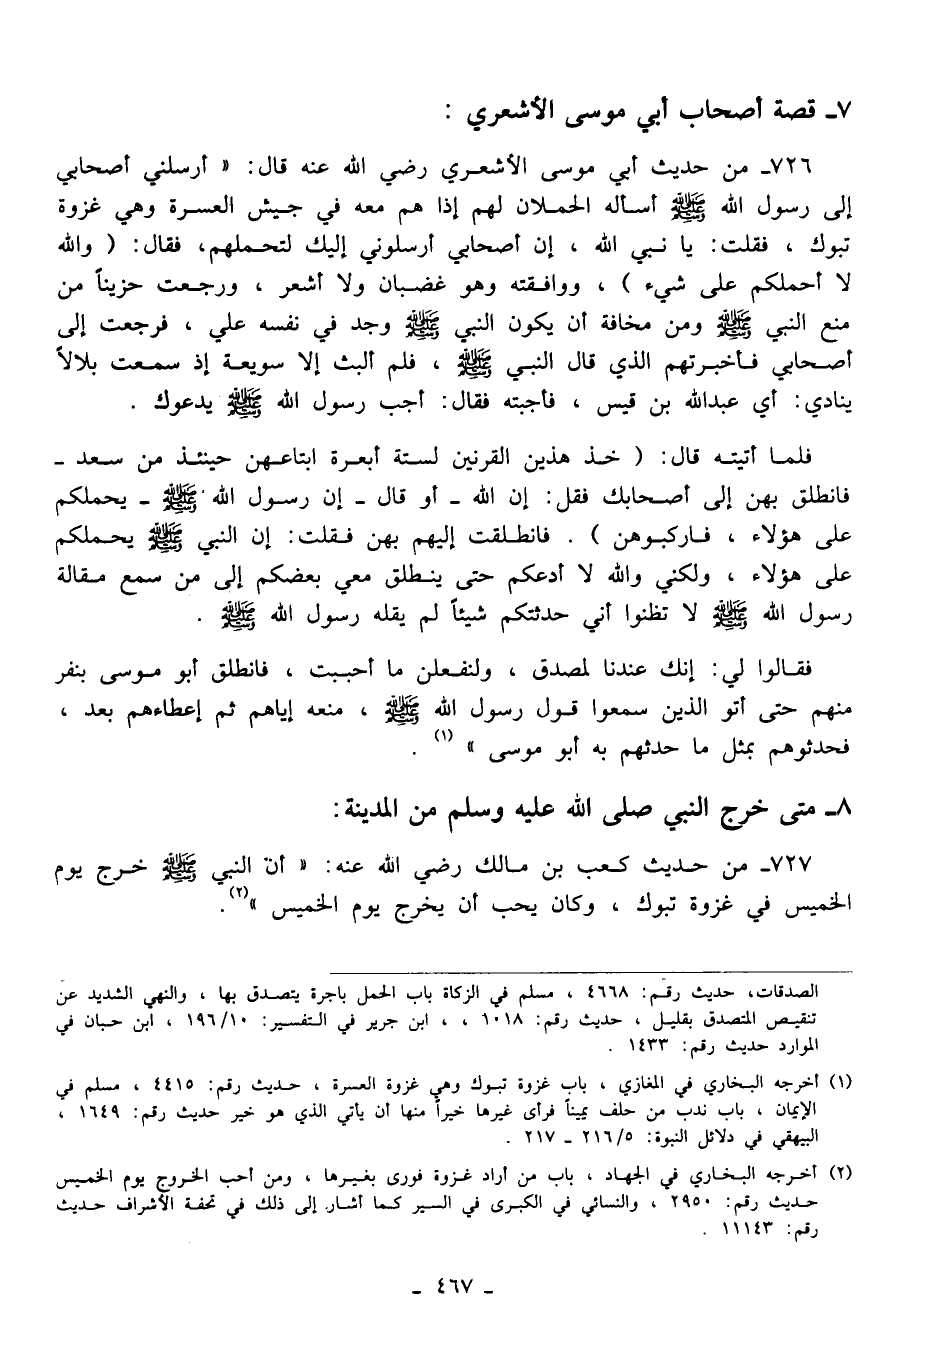 ٧ـ قصة أصحاب أبي موسى الأشعري :
٧٢٦ـ من حديث أبي موسى الأشعري رضي الله عنه قال: « أرسلني أصحابي
إلى رسول الله ﷺ أسأله الحملان لهم إذا هم معه في جيش العسرة وهي غزوة
تبوك ، فقلت: يا نبي الله ، إن أصحابي أرسلوني إليك لتحملهم، فقال: ( والله
لا أحملكم على شيء ) ، ووافقته وهو غضبان ولا أشعر ، ورجعت حزيناً من
منع النبي ﷺ ومن مخافة أن يكون النبي ﷺ وجد في نفسه علي ، فرجعت إلى
أصحابي فأخبرتهم الذي قال النبي ﷺ ، فلم ألبث إلا سويعة إذ سمعت بلالاً
ينادي: أي عبدالله بن قيس ، فأجبته فقال: أجب رسول الله ﷺ يدعوك .
فلما أتيته قال: ( خذ هذين القرنين لستة أبعرة ابتاعهن حينئذ من سعد ـ
فانطلق بهن إلى أصحابك فقل: إن الله ـ أو قال ـ إن رسول الله ﷺ ـ يحملكم
على هؤلاء ، فاركبوهن ) . فانطلقت إليهم بهن فقلت: إن النبي ﷺ يحملكم
على هؤلاء ، ولكني والله لا أدعكم حتى ينطلق معي بعضكم إلى من سمع مقالة
رسول الله ﷺ لا تظنوا أني حدثتكم شيئاً لم يقله رسول الله ﷺ .
فقالوا لي: إنك عندنا لمصدق ، ولنفعلن ما أحببت ، فانطلق أبو موسى بنفر
منهم حتى أتو الذين سمعوا قول رسول الله ﷺ ، منعه إياهم ثم إعطاءهم بعد ،
فحدثوهم بمثل ما حدثهم به أبو موسى » (١) .
٨ـ متى خرج النبي صلى الله عليه وسلم من المدينة:
٧٢٧ـ من حديث كعب بن مالك رضي الله عنه: « أن النبي ﷺ خرج يوم
الخميس في غزوة تبوك ، وكان يحب أن يخرج يوم الخميس »(٢).
الصدقات، حديث رقم: ٤٦٦٨ ، مسلم في الزكاة باب الحمل باجرة يتصدق بها ، والنهي الشديد عن
تنقيص المتصدق بقليل ، حديث رقم: ١٠١٨ ، ، ابن جرير في التفسير: ١٩٦/١٠ ، ابن حبان في
الموارد حديث رقم: ١٤٣٣ .
(١) أخرجه البخاري في المغازي ، باب غزوة تبوك وهي غزوة العسرة ، حديث رقم: ٤٤١٥ ، مسلم في
الإيمان ، باب ندب من حلف يميناً فرأى غيرها خيراً منها أن يأتي الذي هو خير حديث رقم: ١٦٤٩ ،
البيهقي في دلائل النبوة: ٢١٦/٥ ـ ٢١٧ .
(٢) أخرجه البخاري في الجهاد ، باب من أراد غزوة فورى بغيرها ، ومن أحب الخروج يوم الخميس
حديث رقم: ٢٩٥٠ ، والنسائي في الكبرى في السير كما أشار إلى ذلك في تحفة الأشراف حديث
رقم: ١١١٤٣ .
ـ ٤٦٧ ـ